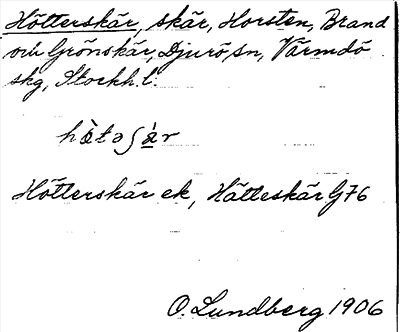 Hötterskär, skär, Horsten, Brand
och Grönskär, Djurö sn, Värmdö
skg, Stockh. l.
hàtəʃà̠r
Hötterskär ek, Hätteskär G76
O. Lundberg 1906